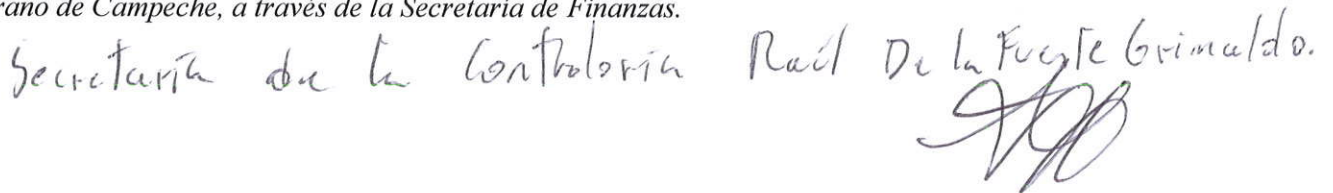 rano de Campeche, a través de la Secretaría de Finanzas.
Secretaría de la Contraloría Raúl De la Fuente Grimaldo.